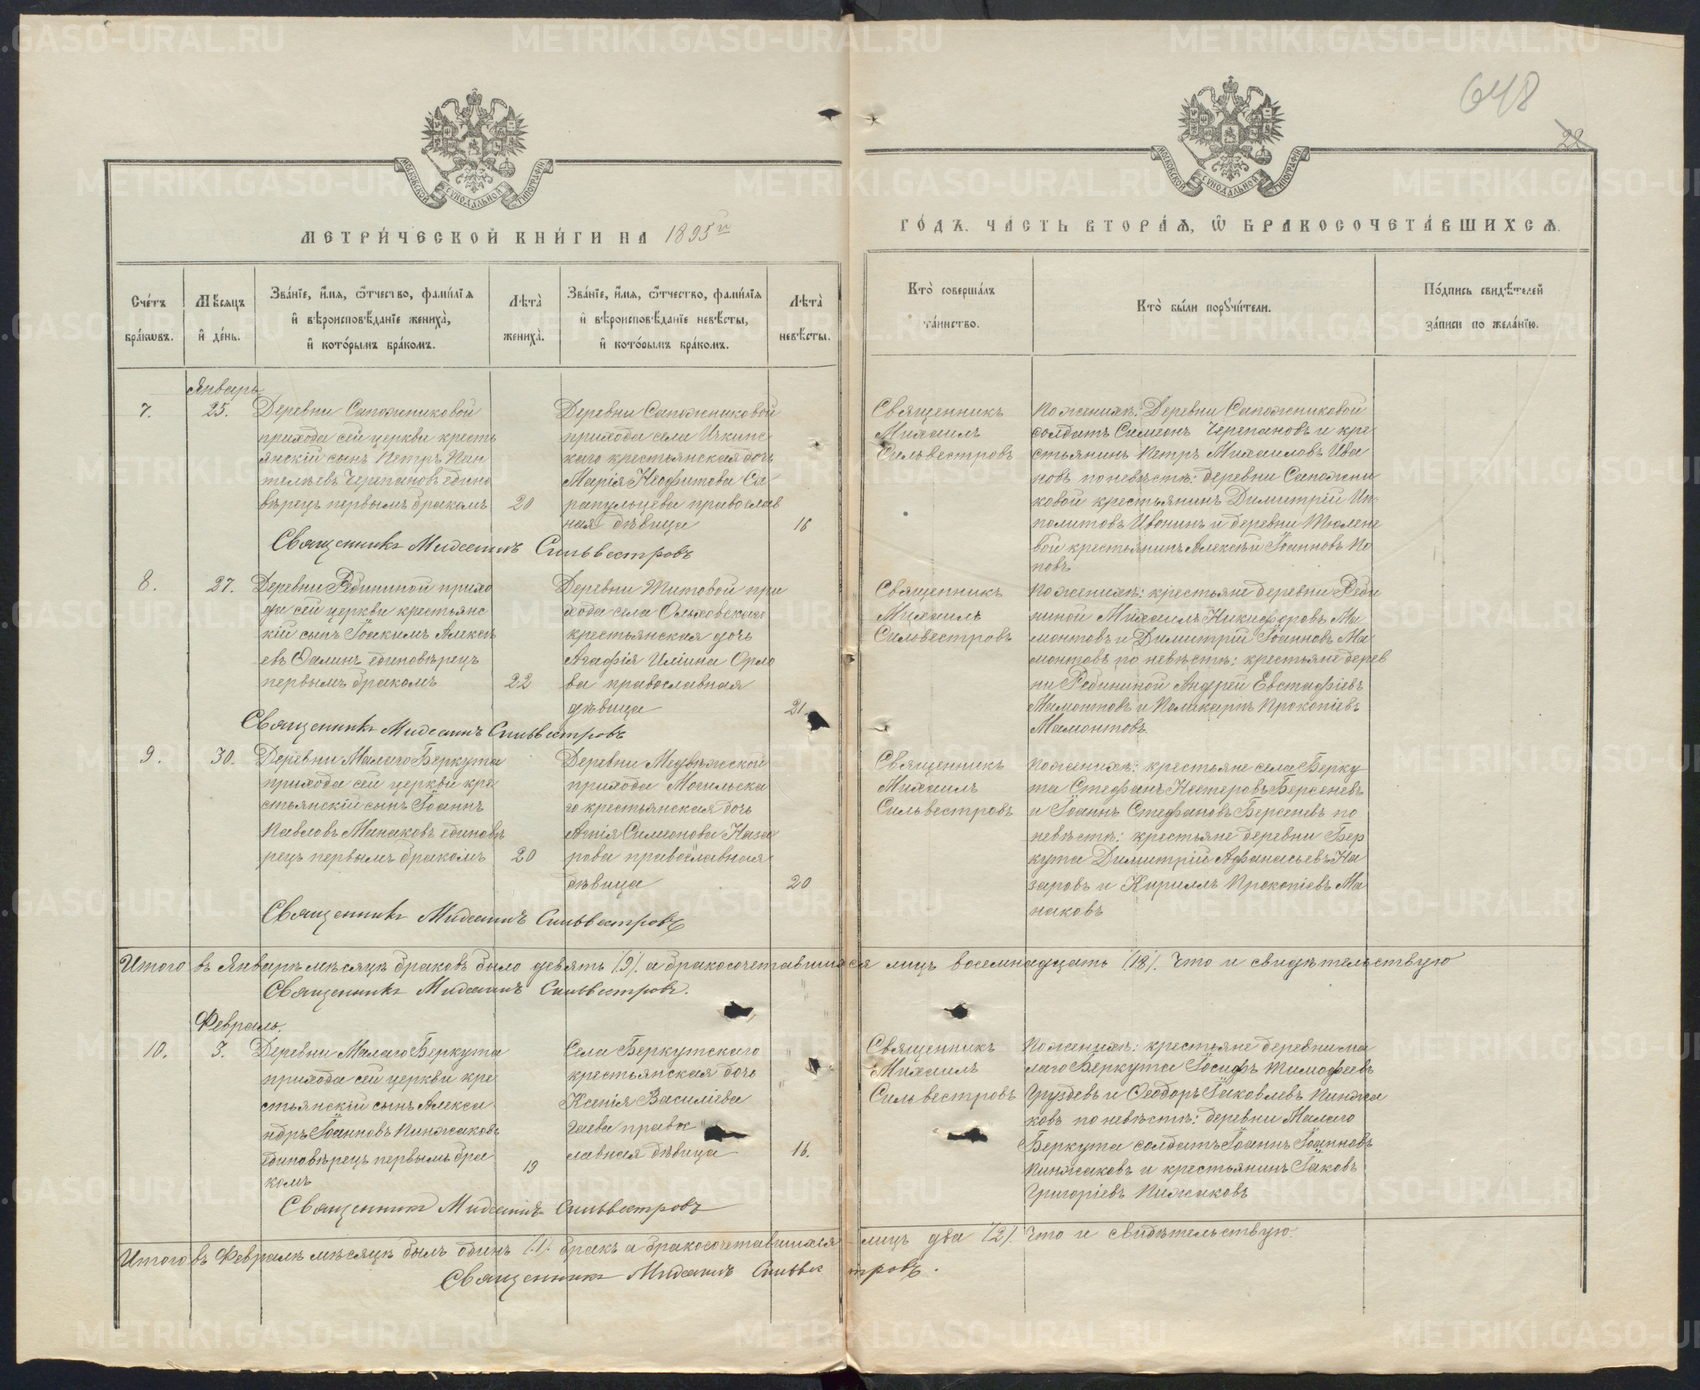 648
22
МЕТРИ́ЧЕСКОЙ КНИ́ГИ НА 1895 го
ГО́ДЪ. ЧА́СТЬ ВТОРА́Я, Ѿ БРАКОСОЧЕТА́ВШИХСЯ.
Сче́тъ бра́кѡвъ.
Мѣ́сяцъ и҆ де́нь.
Зва́нїе, и҆́мя, ѻ҆́тчество, фами́лїя
и҆ вѣроисповѣ́данїе жениха̀,
и҆ кото́рымъ бра́комъ.
Лѣта̀ жениха̀.
Зва́нїе, и҆́мя, ѻ҆́тчество, фами́лїя
и҆ вѣроисповѣ́данїе невѣ́сты,
и҆ кото́рымъ бра́комъ.
Лѣта̀ невѣ́сты.
Кто̀ соверша́лъ
та́инство.
Кто̀ бы́ли порꙋчи́тели.
По́дпись свидѣ́телей
за́писи по жела́нїю.
Январь
7.
25.
Деревни Сапожниковой
прихода сей церкви кресть
янскій сынъ Петръ Пан
телѣевъ Черепановъ едино
вѣрецъ первымъ бракомъ
20
Деревни Сапожниковой
прихода села Ичкинс
каго крестьянская дочь
Марія Неофитова Са
рапульцева православ
ная дѣвица
16
Священникъ
Михаилъ
Сильвестровъ
По женихѣ: Деревни Сапожниковой
солдатъ Симеонъ Черепановъ и кре
стьянинъ Петръ Михаиловъ Ива
новъ по невѣстѣ: деревни Сапожни
ковой крестьянинъ Димитрій Ип
политовъ Ивонинъ и деревни Тюлене
вой крестьянинъ Алексѣй Іоанновъ По
повъ.
Священникъ Михаилъ Сильвестровъ
8.
27.
Деревни Рябининой прихо
да сей церкви крестьянс
кій сынъ Іоакимъ Алексѣ
евъ единовѣрецъ
первымъ бракомъ
22
Деревни Титовой при
хода села Ольховскаго
крестьянская дочь
Агафія Иліина Орло
ва православная
дѣвица
21
Священникъ
Михаилъ
Сильвестровъ
По женихѣ: крестьяне деревни Ряби
ниной Михаилъ Никифоровъ Ма
монтовъ и Димитрій Іоанновъ Ма
монтовъ по невѣстѣ: крестьяне дерев
ни Рябининой Андрей Евстафіевъ
Мамонтовъ и Поликарпъ Прокопіевъ
Мамонтовъ
Священникъ Михаилъ Сильвестровъ
9.
30.
Деревни Малаго Беркута
прихода сей церкви кре
стьянскій сынъ Іоаннъ
Павловъ Манаковъ единовѣ
рецъ первымъ бракомъ
20
Деревни Медвѣжской
прихода Могильска
го крестьянская дочь
Симеонова Наза
рова православная
дѣвица
20
Священникъ
Михаилъ
Сильвестровъ
По женихѣ: крестьяне села Берку
та Стефанъ Нестеровъ Берсеневъ
и Іоаннъ Стефановъ Берсеневъ по
невѣстѣ: крестьяне деревни Бер
кута Димитрій Афанасьевъ На
заровъ и Кириллъ Прокопіевъ Ма
наковъ
Священникъ Михаилъ Сильвестровъ
Итого въ Январѣ мѣсяцѣ браковъ было девять (9) а бракосочетавшихся лицъ восемнадцать (18). Что и свидѣтельствую
Священникъ Михаилъ Сильвестровъ.
Февраль.
10.
3.
Деревни Малаго Беркута
прихода сей церкви кре
стьянскій сынъ Алекса
ндръ Іоанновъ Пинжаковъ
единовѣрецъ первымъ бра
комъ
19
Села Беркутскаго
крестьянская дочь
Ксенія Василіева
Гаева правос
лавная дѣвица
16.
Священникъ
Михаилъ
Сильвестровъ
По женихѣ: крестьяне деревни Ма
лаго Беркута Іосифъ Тимофеевъ
Груздевъ и Ѳеодоръ Іаковлевъ Пинжа
ковъ по невѣстѣ: деревни Малаго
Беркута солдатъ Іоаннъ Іоанновъ
Пинжаковъ и крестьянинъ Іаковъ
Григоріевъ Пижаковъ
Священникъ Михаилъ Сильвестровъ
Итого въ Февралѣ мѣсяцѣ былъ одинъ (1) бракъ а бракосочетавшихся лицъ два (2). Что и свидѣтельствую.
Священникъ Михаилъ Сильвестровъ.
METRIKI.GASO-URAL.RU